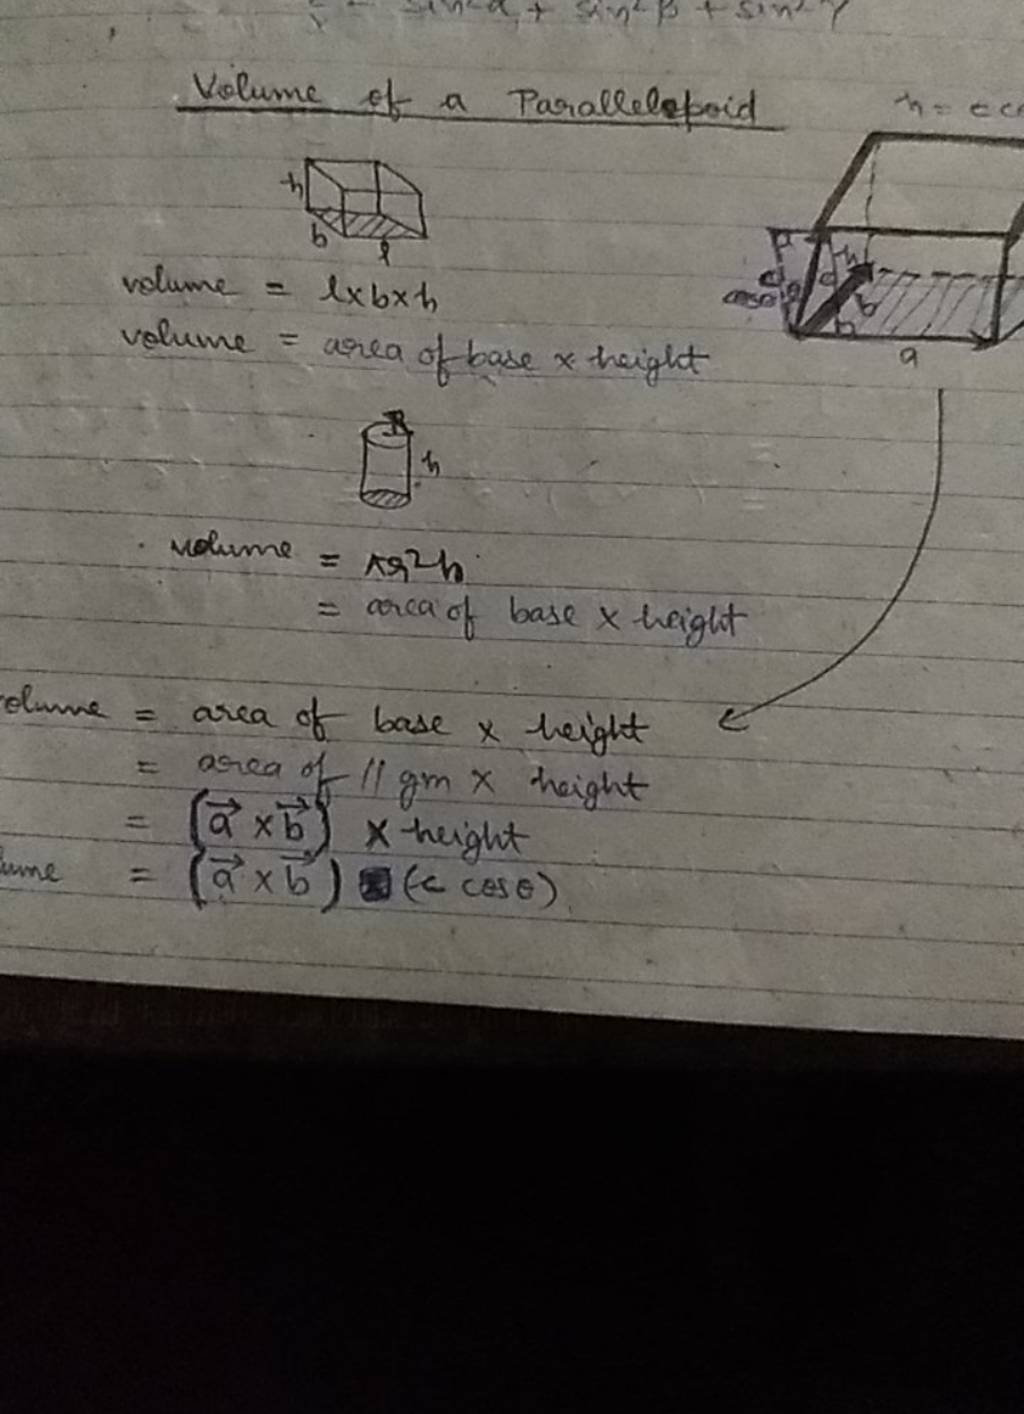 sin²α + sin²β + sin²γ
Volume of a Parallelopoid
h = c co
h
b
l
volume = l×b×h
volume = area of base × height
a
b
R
h
volume = πr²h
= area of base × height
volume = area of base × height
= area of || gm × height
= (a⃗ × b⃗) × height
lume = (a⃗ × b⃗) (c cosθ)